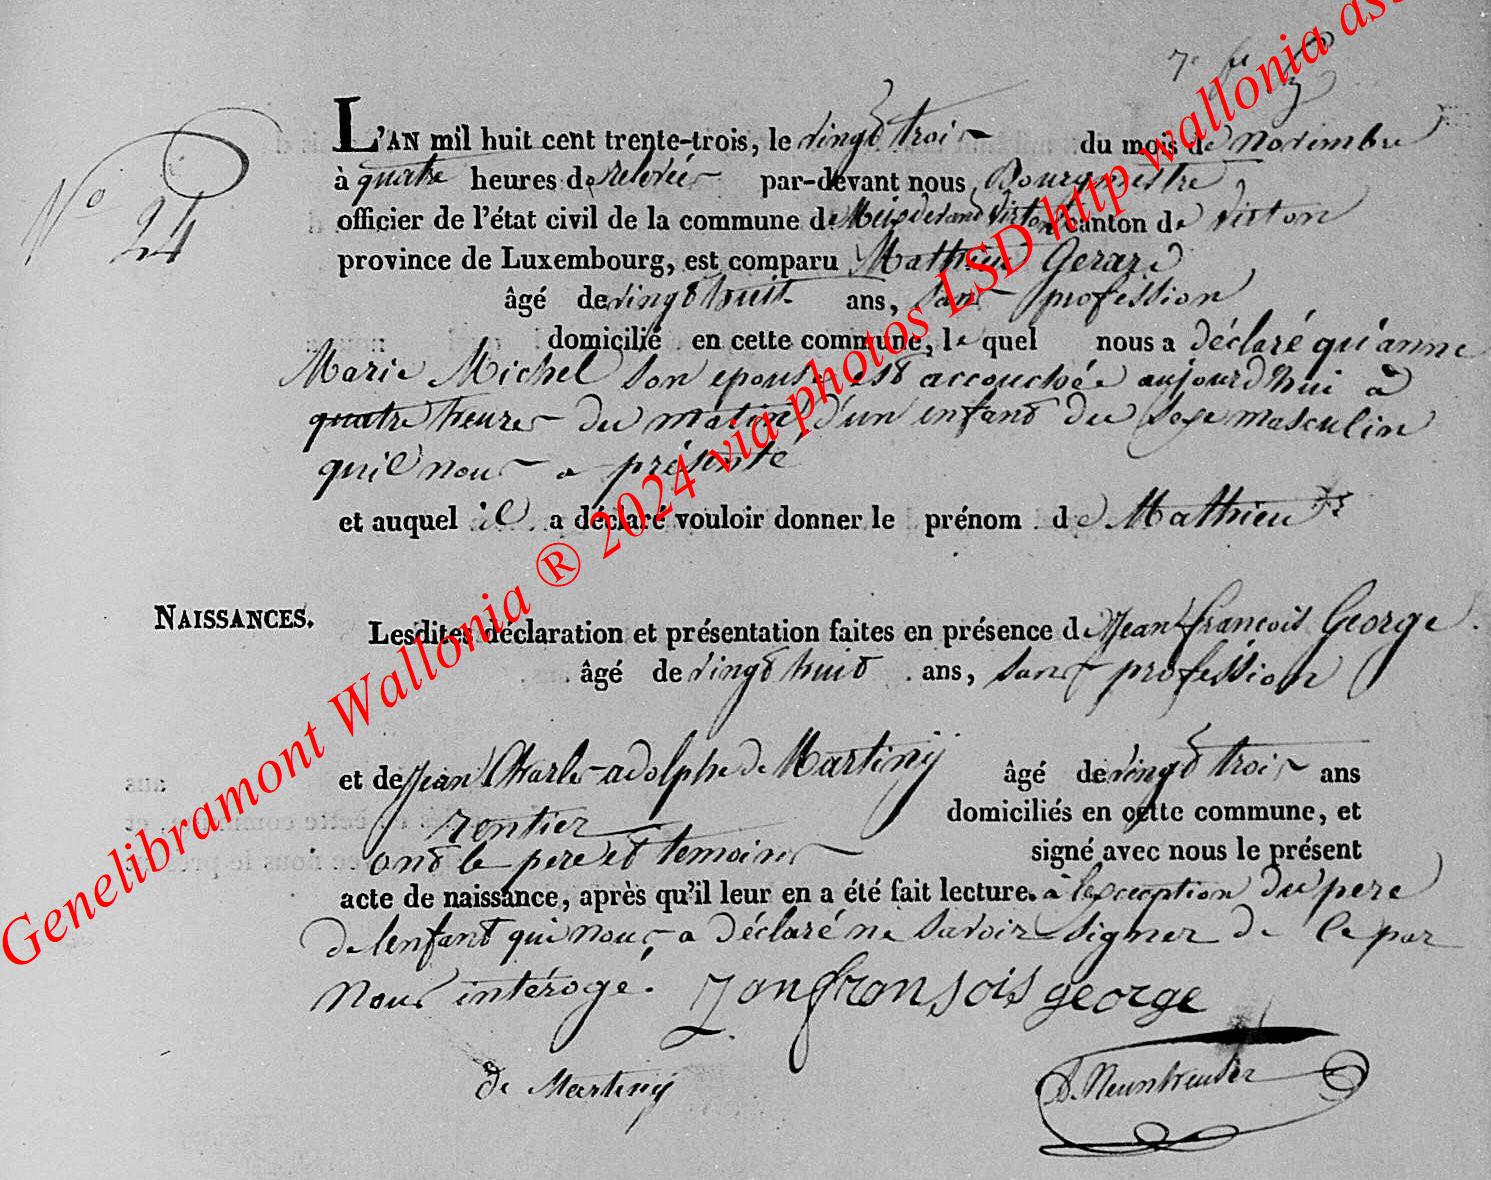 7e
No 24
L'AN mil huit cent trente-trois, le vingt trois du mois de novembre
à quatre heures de relevée par-devant nous Bourgmestre
officier de l'état civil de la commune de Meix devant Virton canton de virton
province de Luxembourg, est comparu Mathieu Gerard
âgé de vingt huit ans, sans profession
domicilié en cette commune, le quel nous a déclaré qu'anne
Marie Michel son epouse est accouchée aujourd'hui à
quatre heures du matin, d'un enfant du sexe masculin
quil nous a présenté
et auquel il a déclaré vouloir donner le prénom de Mathieu
NAISSANCES.
Lesdites déclaration et présentation faites en présence de Jean françois George
âgé de vingt huit ans, sans profession
et de Jean Charle adolphe de Martiny âgé de vingt trois ans
rentier domiciliés en cette commune, et
ont le pere et temoins signé avec nous le présent
acte de naissance, après qu'il leur en a été fait lecture. à l'exception du pere
de lenfant qui nous a déclaré ne savoir signer de ce par
nous intérogé. Janfransois george
de Martiny
Genelibramont Wallonia ® 2024 via photos LSD http wallonia